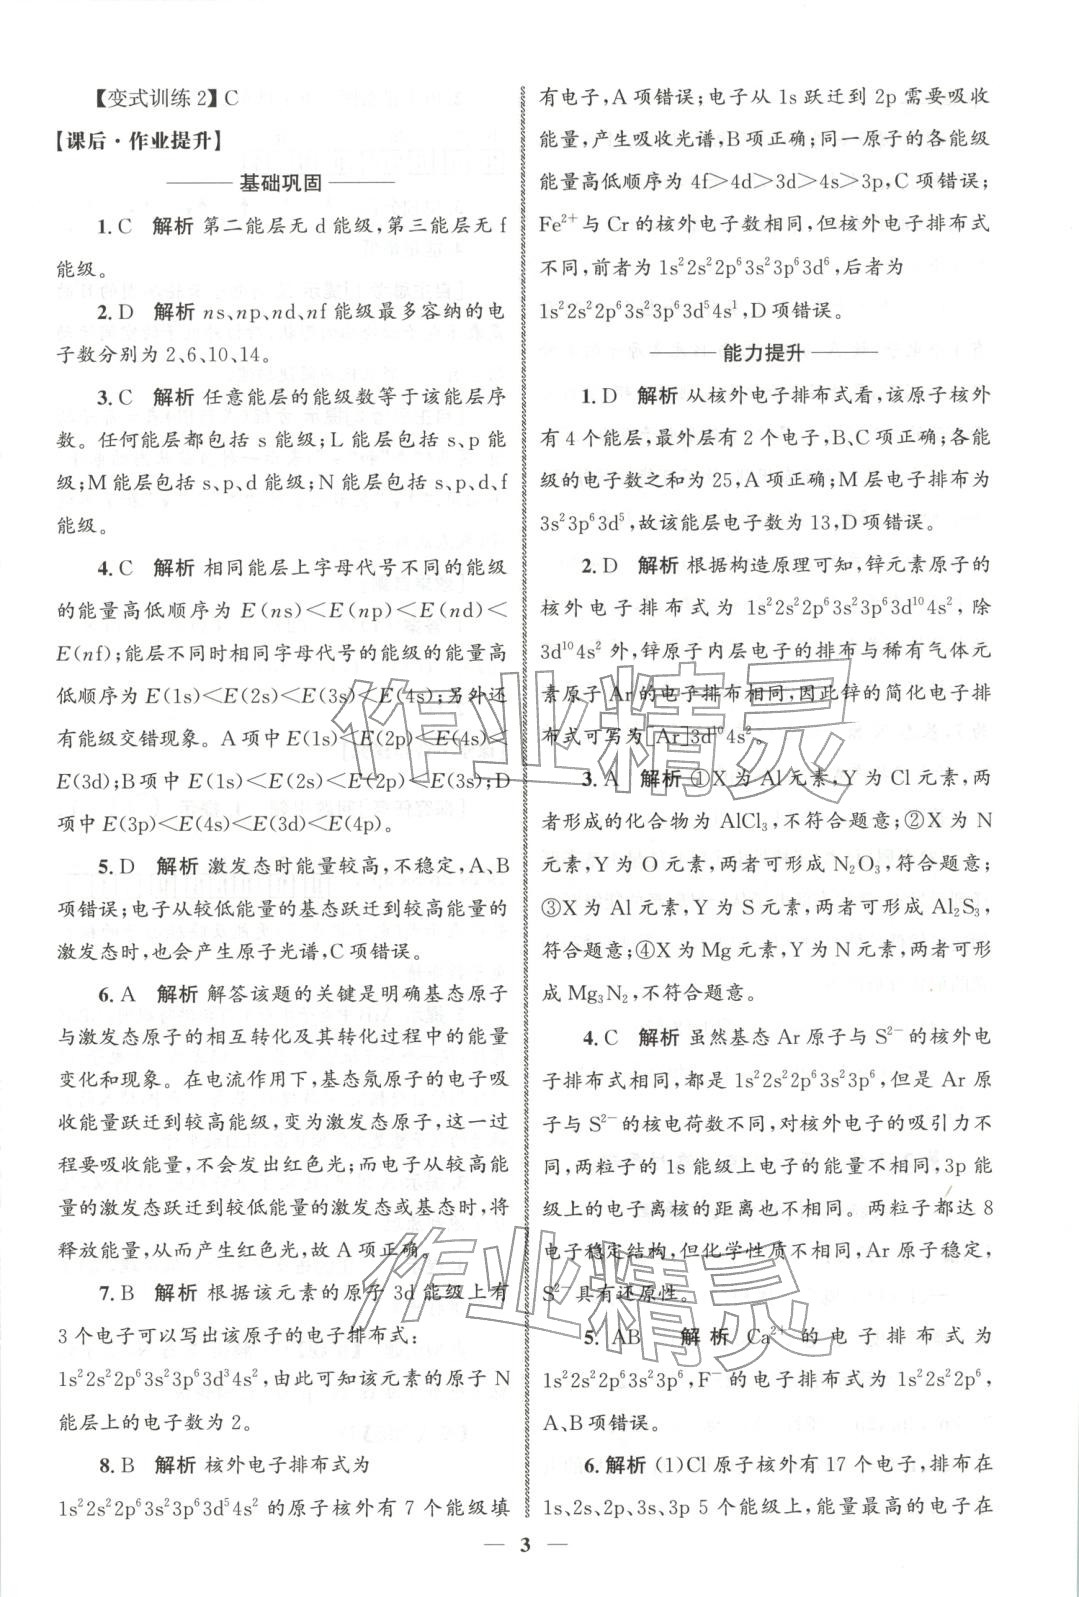 【变式训练2】C
【课后·作业提升】
基础巩固
1. C 解析 第二能层无 d 能级,第三能层无 f
能级。
2. D 解析 ns、np、nd、nf 能级最多容纳的电
子数分别为 2、6、10、14。
3. C 解析 任意能层的能级数等于该能层序
数。任何能层都包括 s 能级;L 能层包括 s、p 能
级;M 能层包括 s、p、d 能级;N 能层包括 s、p、d、f
能级。
4. C 解析 相同能层上字母代号不同的能级
的能量高低顺序为 E(ns)<E(np)<E(nd)<
E(nf);能层不同时相同字母代号的能级的能量高
低顺序为 E(1s)<E(2s)<E(3s)<E(4s);另外还
有能级交错现象。A 项中 E(1s)<E(2p)<E(4s)<
E(3d);B 项中 E(1s)<E(2s)<E(2p)<E(3s);D
项中 E(3p)<E(4s)<E(3d)<E(4p)。
5. D 解析 激发态时能量较高,不稳定,A、B
项错误;电子从较低能量的基态跃迁到较高能量的
激发态时,也会产生原子光谱,C 项错误。
6. A 解析 解答该题的关键是明确基态原子
与激发态原子的相互转化及其转化过程中的能量
变化和现象。在电流作用下,基态氖原子的电子吸
收能量跃迁到较高能级,变为激发态原子,这一过
程要吸收能量,不会发出红色光;而电子从较高能
量的激发态跃迁到较低能量的激发态或基态时,将
释放能量,从而产生红色光,故 A 项正确。
7. B 解析 根据该元素的原子 3d 能级上有
3 个电子可以写出该原子的电子排布式:
1s²2s²2p⁶3s²3p⁶3d³4s²,由此可知该元素的原子 N
能层上的电子数为 2。
8. B 解析 核外电子排布式为
1s²2s²2p⁶3s²3p⁶3d⁵4s² 的原子核外有 7 个能级填
有电子,A 项错误;电子从 1s 跃迁到 2p 需要吸收
能量,产生吸收光谱,B 项正确;同一原子的各能级
能量高低顺序为 4f>4d>3d>4s>3p,C 项错误;
Fe²⁺与 Cr 的核外电子数相同,但核外电子排布式
不同,前者为 1s²2s²2p⁶3s²3p⁶3d⁶,后者为
1s²2s²2p⁶3s²3p⁶3d⁵4s¹,D 项错误。
能力提升
1. D 解析 从核外电子排布式看,该原子核外
有 4 个能层,最外层有 2 个电子,B、C 项正确;各能
级的电子数之和为 25,A 项正确;M 层电子排布为
3s²3p⁶3d⁵,故该能层电子数为 13,D 项错误。
2. D 解析 根据构造原理可知,锌元素原子的
核外电子排布式为 1s²2s²2p⁶3s²3p⁶3d¹⁰4s²,除
3d¹⁰4s² 外,锌原子内层电子的排布与稀有气体元
素原子 Ar 的电子排布相同,因此锌的简化电子排
布式可写为[Ar]3d¹⁰4s²。
3. A 解析 ①X 为 Al 元素,Y 为 Cl 元素,两
者形成的化合物为 AlCl₃,不符合题意;②X 为 N
元素,Y 为 O 元素,两者可形成 N₂O₃,符合题意;
③X 为 Al 元素,Y 为 S 元素,两者可形成 Al₂S₃,
符合题意;④X 为 Mg 元素,Y 为 N 元素,两者可形
成 Mg₃N₂,不符合题意。
4. C 解析 虽然基态 Ar 原子与 S²⁻ 的核外电
子排布式相同,都是 1s²2s²2p⁶3s²3p⁶,但是 Ar 原
子与 S²⁻ 的核电荷数不同,对核外电子的吸引力不
同,两粒子的 1s 能级上电子的能量不相同,3p 能
级上的电子离核的距离也不相同。两粒子都达 8
电子稳定结构,但化学性质不同,Ar 原子稳定,
S²⁻ 具有还原性。
5. AB 解析 Ca²⁺ 的电子排布式为
1s²2s²2p⁶3s²3p⁶,F⁻ 的电子排布式为 1s²2s²2p⁶,
A、B 项错误。
6. 解析 (1)Cl 原子核外有 17 个电子,排布在
1s、2s、2p、3s、3p 5 个能级上,能量最高的电子在
— 3 —
作业精灵
作业精灵